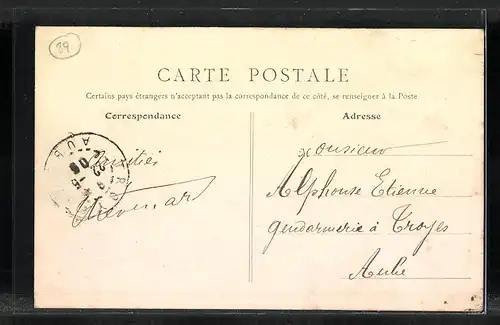 89
CARTE POSTALE
Certains pays étrangers n'acceptent pas la correspondance de ce côté, se renseigner à la Poste
Correspondance
Adresse
Amitiés
Monsieur
Alphonse Etienne
gendarmerie à Troyes
Aube
AUBE